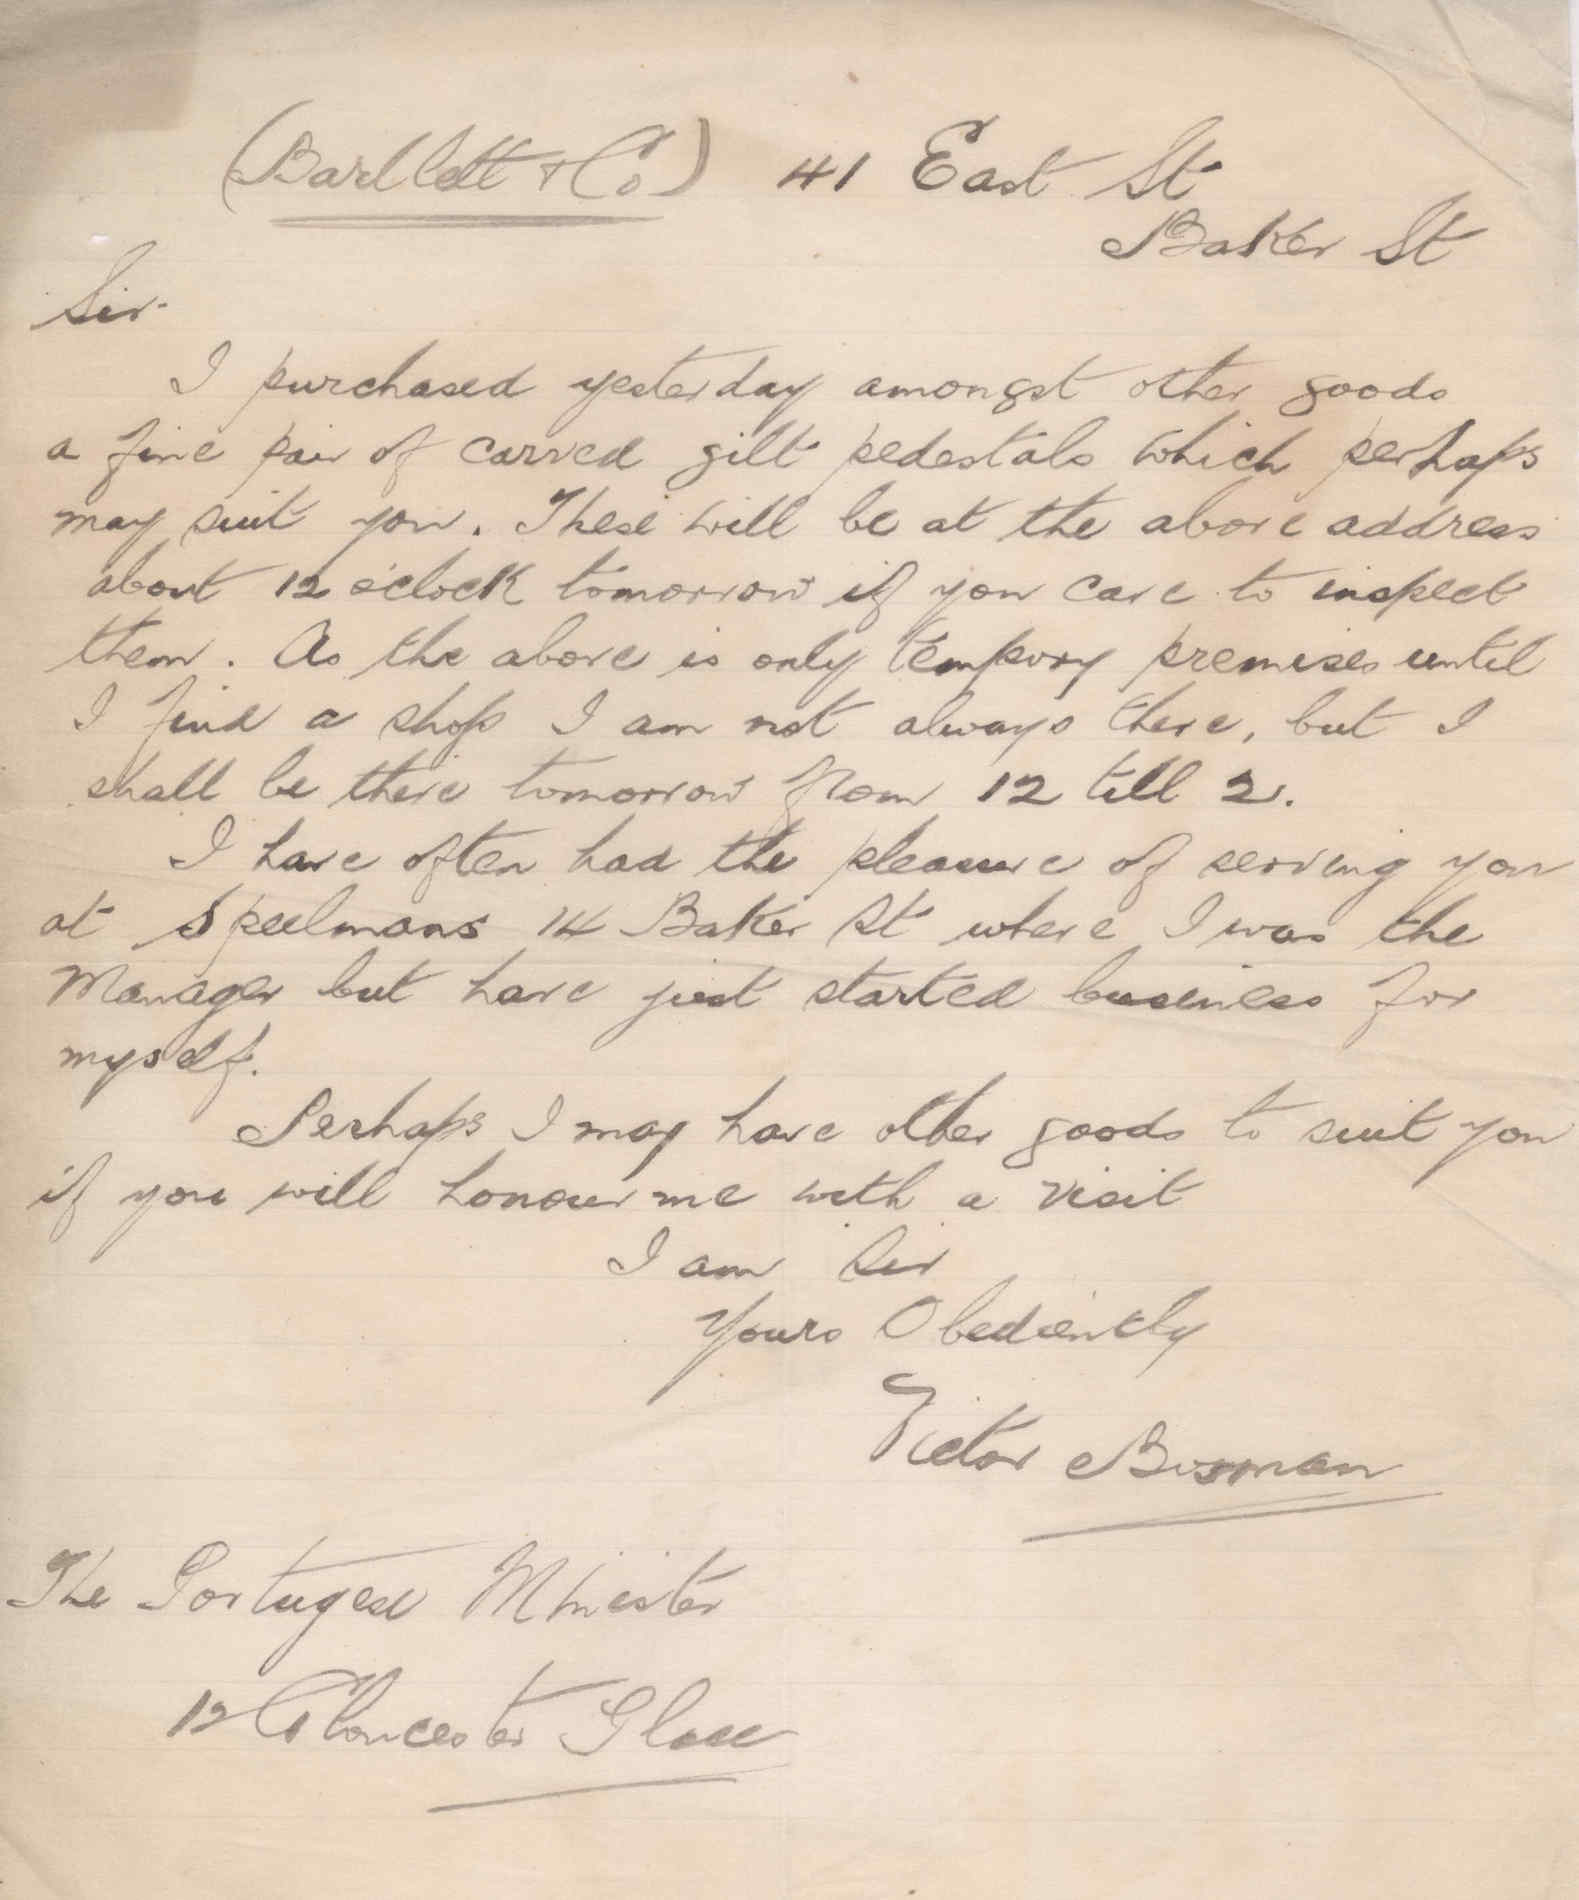 (Bartlett + Co) 41 East St
Baker St
Sir.
I purchased yesterday amongst other goods
a fine pair of carved gilt pedestals which perhaps
may suit you. These will be at the above address
about 12 o'clock tomorrow if you care to inspect
them. As the above is only tempory premises until
I find a shop I am not always there, but I
shall be there tomorrow from 12 till 2.
I have often had the pleasure of serving you
at Speelmans 14 Baker St where I was the
Manager but have just started business for
myself.
Perhaps I may have other goods to suit you
if you will honour me with a visit
I am Sir
Yours Obediently
Victor
The Portugese Minister
12 Gloucester Place